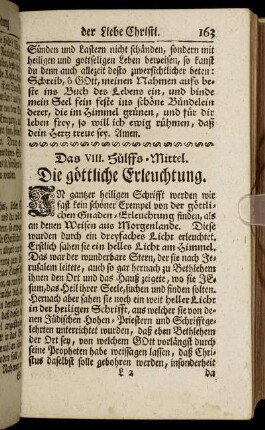 der Liebe Christi. 163
Sünden und Lastern nicht schänden, sondern mit
heiligen und gottseligen Leben beweisen, so kanst
du denn auch allezeit desto zuversichtlicher beten:
Schreib, ô GOtt, meinen Nahmen aufs be-
ste ins Buch des Lebens ein, und binde
mein Seel fein feste ins schöne Bündelein
derer, die im Himmel grünen, und für dir
leben frey, so will ich ewig rühmen, daß
dein Hertz treue sey. Amen.
Das VIII. Hülffs-Mittel.
Die göttliche Erleuchtung.
IN gantzer heiligen Schrifft werden wir
fast kein schöner Exempel von der göttli-
chen Gnaden-Erleuchtung finden, als
an denen Weisen aus Morgenlande. Diese
wurden durch ein dreyfaches Licht erleuchtet.
Erstlich sahen sie ein helles Licht am Himmel.
Das war der wunderbare Stern, der sie nach Je-
rusalem leitete, auch so gar hernach zu Bethlehem
ihnen den Ort und das Hauß zeigete, wo sie JE-
sum, das Heil ihrer Seele, suchen und finden solten.
Hernach aber sahen sie noch ein weit heller Licht
in der heiligen Schrifft, aus welcher sie von de-
nen Jüdischen Hohen-Priestern und Schrifftge-
lehrten unterrichtet wurden, daß eben Bethlehem
der Ort sey, von welchem GOtt vorlängst durch
seine Propheten habe weissagen lassen, daß Chri-
stus daselbst solle gebohren werden, insonderheit
L 2 da